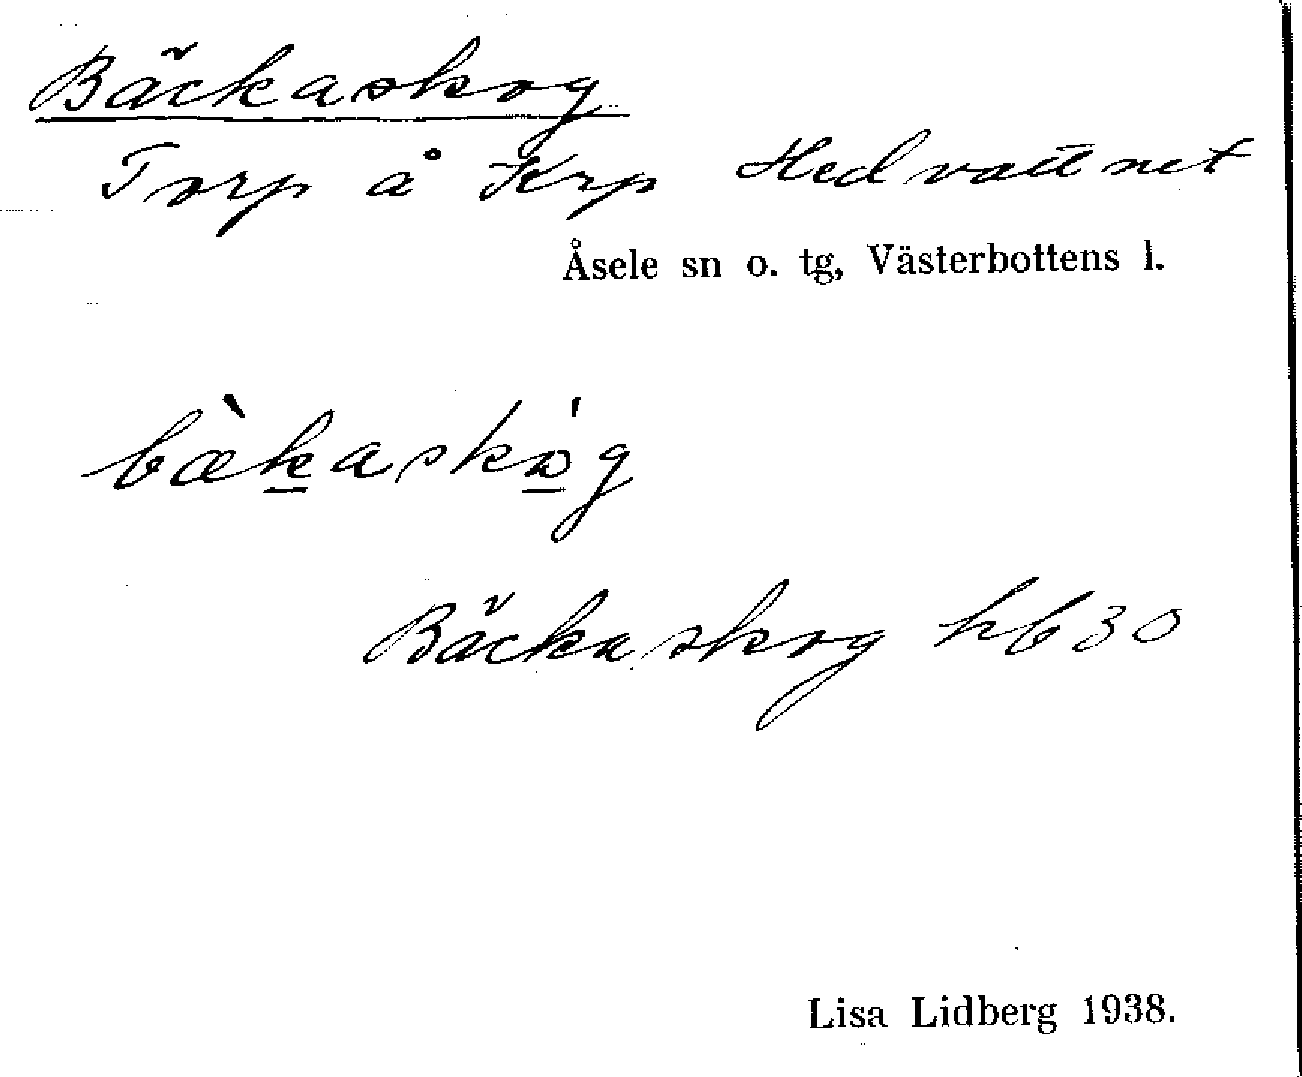 Bäckaskog
Torp å Krp Hedvattnet
Åsele sn o. tg, Västerbottens l.
bæ̀k̲askɷ̲́g
Bäckaskog hb 30
Lisa Lidberg 1938.